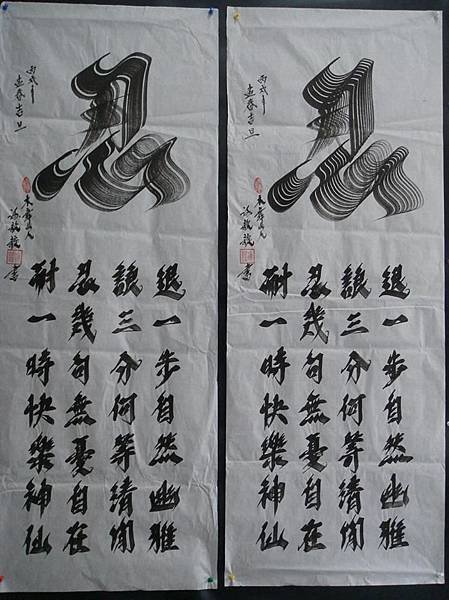 忍
丙戌年
春吉旦
書
退一步自然幽雅
讓三分何等清閒
忍幾句無憂自在
耐一時快樂神仙
忍
丙戌年
春吉旦
書
退一步自然幽雅
讓三分何等清閒
忍幾句無憂自在
耐一時快樂神仙